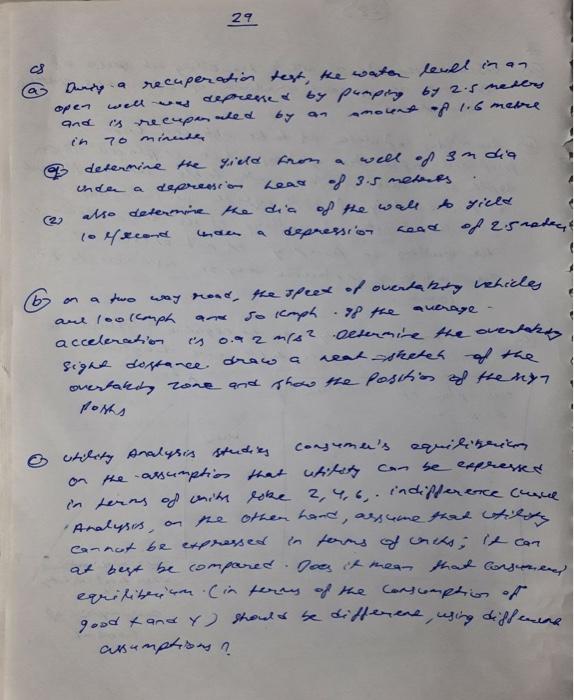 29
C8
(a) During a recuperation test, the water level in an
open well was depressed by pumping by 2.5 meters
and is recuperated by an amount of 1.6 metre
in 70 minutes
determine the yield from a well of 3 m dia
under a depression head of 3.5 meters.
(2) also determine the dia of the well to yield
10 l/second under a depression head of 2.5 meters
(b) on a two way road, the speed of overtaking vehicles
are 100 kmph and 50 kmph. If the average
acceleration is 0.92 m/s² Determine the overtaking
sight distance. draw a neat sketch of the
overtaking zone and show the position of the sign
Posts
(c) utility Analysis studies consumer's equilibrium
on the assumption that utility can be expressed
in terms of units like 2, 4, 6,. indifference curve
Analysis, on the other hand, assume that utility
cannot be expressed in terms of units; it can
at best be compared. Does it mean that consumers
equilibrium (in terms of the consumption of
good X and Y) should be different, using different
assumptions?